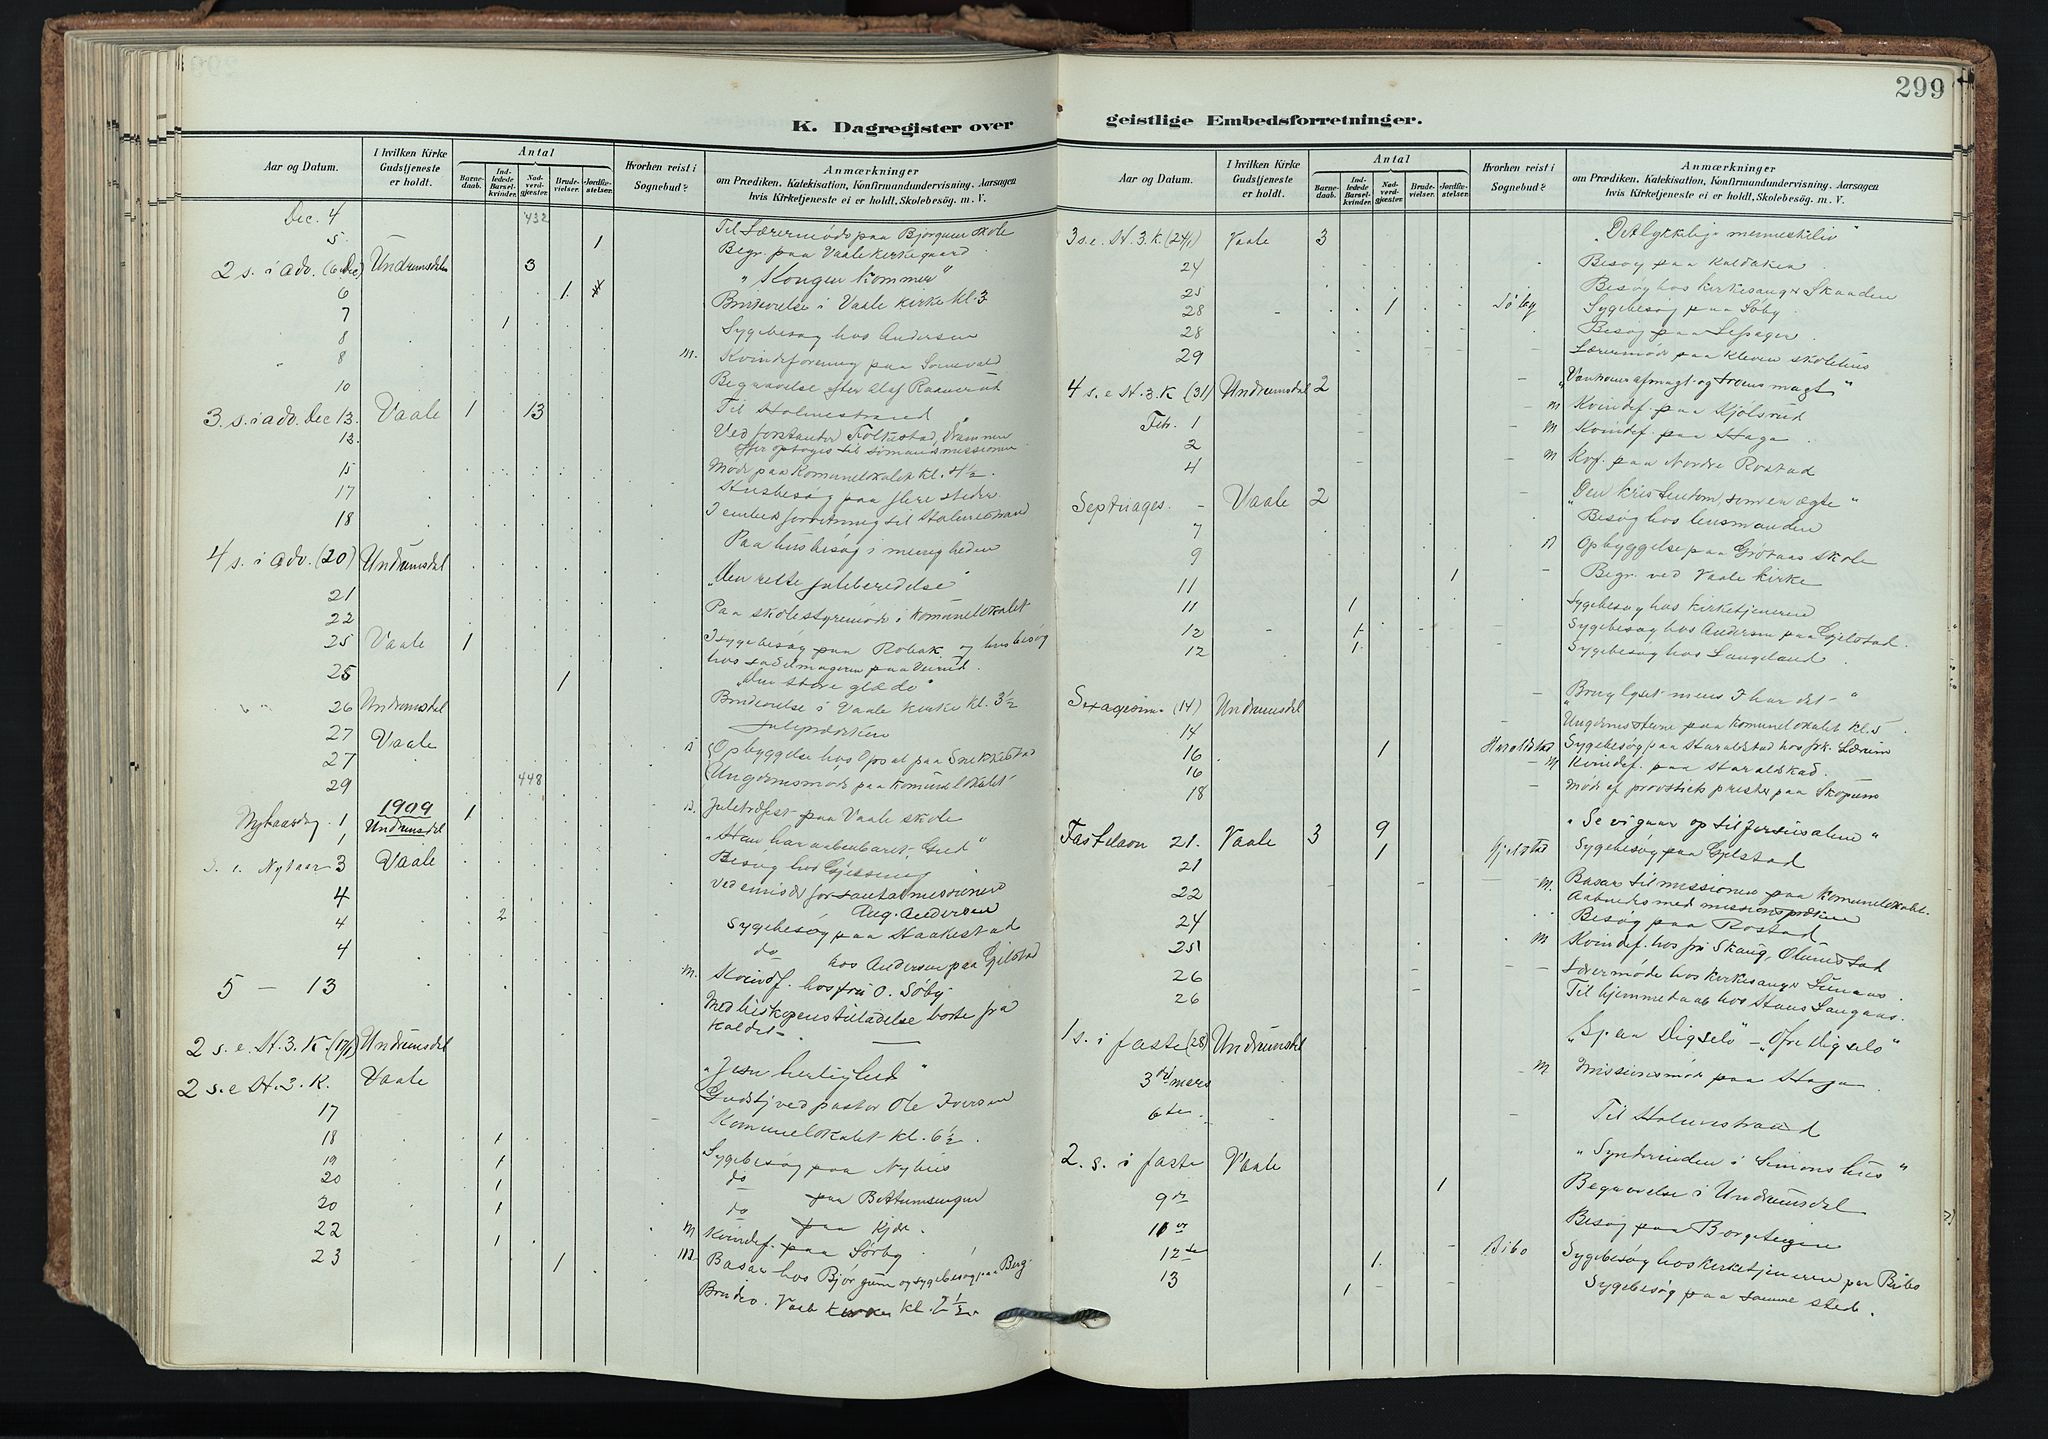 299
K. Dagregister over geistlige Embedsforretninger.
Aar og Datum.
I hvilken Kirke Gudstjeneste er holdt.
Antal
Barnedaab.
Indledede Barselkvinder.
Nadverdgjester.
Brudevielser.
Jordfæstelser.
Hvorhen reist i Sognebud?
Anmærkninger
om Prædiken, Katekisation, Konfirmandundervisning, Aarsagen
hvis Kirketjeneste ei er holdt, Skolebesøg, m. V.
Dec. 4 432 Til Lærermøde paa Bjørgum skole
5 1 Begr. paa Vaale kirkegaard
2 s. i adv. (6 Dec) Undrumsdal 3 "Kongen kommer"
6 1 Brudevielse i Vaale kirke kl. 3
7 1 Sygebesøg hos Andersen
8 M. Kvindeforening paa
8 Begravelse efter Olaf
10 Til Holmestrand
3 s. i adv. Dec 13. Vaale 1 13 Ved forstander Drammen
13. Offer optoges til sømandsmissionen
15 Møde paa Komunelokalet kl. 4½.
17 Husbesøg paa flere steder
18 I embedsforretning til Holmestrand
4 s. i adv. (20) Undrumsdal Paa husbesøg i menigheden
21 "Den rette juleberedelse"
22 Paa skolestyremøde i komunelokalet
25 Vaale 1 I sygebesøg paa og husbesøg
hos sadelmageren paa
25 1 "Den store glæde"
26 Undrumsdal Brudevielse i Vaale kirke kl. 3½
27 Vaale Juleprædiken
27 Opbyggelse hos Opsal paa Snekkestad
29 448 Ungdomsmøde paa komunelokalet
1909
Nytaarsdag 1 Undrumsdal 1 Juletræfest paa Vaale skole
1 "Han har aabenbaret Gud"
S. e. Nytaar 3 Vaale Besøg hos Gjessing
4 ved emisær for santalmissionen
Aug. Andersen
4 2 Sygebesøg paa Haakestad
4 do hos Andersen paa Gjelstad
5 — 13 M. Kvindf. hos fru O. Søby
Med biskopens tilladelse borte fra
kaldet
2 s. e. H. 3. K. (17/1) Undrumsdal "Jesu herlighed"
2 s. e H. 3. K. Vaale Gudstj ved pastor Ole Iversen
17 Komunelokalet kl. 6½.
18 1 Sygebesøg paa Nyhus
19 1 do paa
20 1 do paa Kjær.
20 1
22 1 M Kvindef. paa Sørby
23 1 M. Basar hos Bjørgum og sygebesøg paa Berg
Brudev. Vaale kirke kl.
Aar og Datum.
I hvilken Kirke Gudstjeneste er holdt.
Antal
Barnedaab.
Indledede Barselkvinder.
Nadverdgjester.
Brudevielser.
Jordfæstelser.
Hvorhen reist i Sognebud?
Anmærkninger
om Prædiken, Katekisation, Konfirmandundervisning, Aarsagen
hvis Kirketjeneste ei er holdt, Skolebesøg, m. V.
3 s. e. H. 3. K. (24/1) Vaale 3 "Det lykkelige menneskeliv"
24 Besøg paa
25 Besøg hos kirkesanger Skaaden
28 1 Søby Sygebesøg paa Søby
28 Besøg paa
29 Lærermøde paa Kleven skolehus
4 s. e H. 3. K (31) Undrumsdal 2 "Vantroens afmagt og troens magt"
Feb. 1 M Kvindef. paa Kjølsrud
2 M Kvindef. paa Haga
4 M Kvf. paa Nordre Rostad
Septuages. Vaale 2 "Den kristendom, som en ægte"
7 Besøg hos husmanden
9 Opbyggelse paa skole
11 1 Begr. ved Vaale kirke
11 1 Sygebesøg hos kirketjeneren
12 1 Sygebesøg hos Andersen paa Gjelstad.
12 1 Sygebesøg hos Langeland
Sexagesima (14) Undrumsdal "Brug lyset mens I har det"
14 Ungdomsstevne paa komunelokalet kl. 5
16 1 Haraldstad Sygebesøg paa Haraldstad hos frk. Lærum
16 M Kvindef. paa Haraldstad.
18 Møde af provstiets prester paa Skopum
Fastelavn 21. Vaale 3 9 "Se vi gaar op til Jerusalem"
21 1 Gjelstad Sygebesøg paa Gjelstad
22 M. Basar til missionen paa Komunelokalet.
Aabnedes med missionsprædiken
24 Besøg paa Rostad
25 M Kvindef. hos fru Skaug,
26 Lærermøde hos kirkesanger
26 Til hjemmedaab hos Hans Langaas.
1 s. i faste (28) Undrumsdal
3die mars M Missionsmøde paa Haga
6te. Til Holmestrand
2. s. i faste Vaale "Synderinden i Simons hus"
9de 1 Begravelse i Undrumsdal
10de Besøg paa Borgeteigen
12te 1 Bibo Sygebesøg hos kirketjeneren paa Bibo
13 1 Sygebesøg paa samme sted.